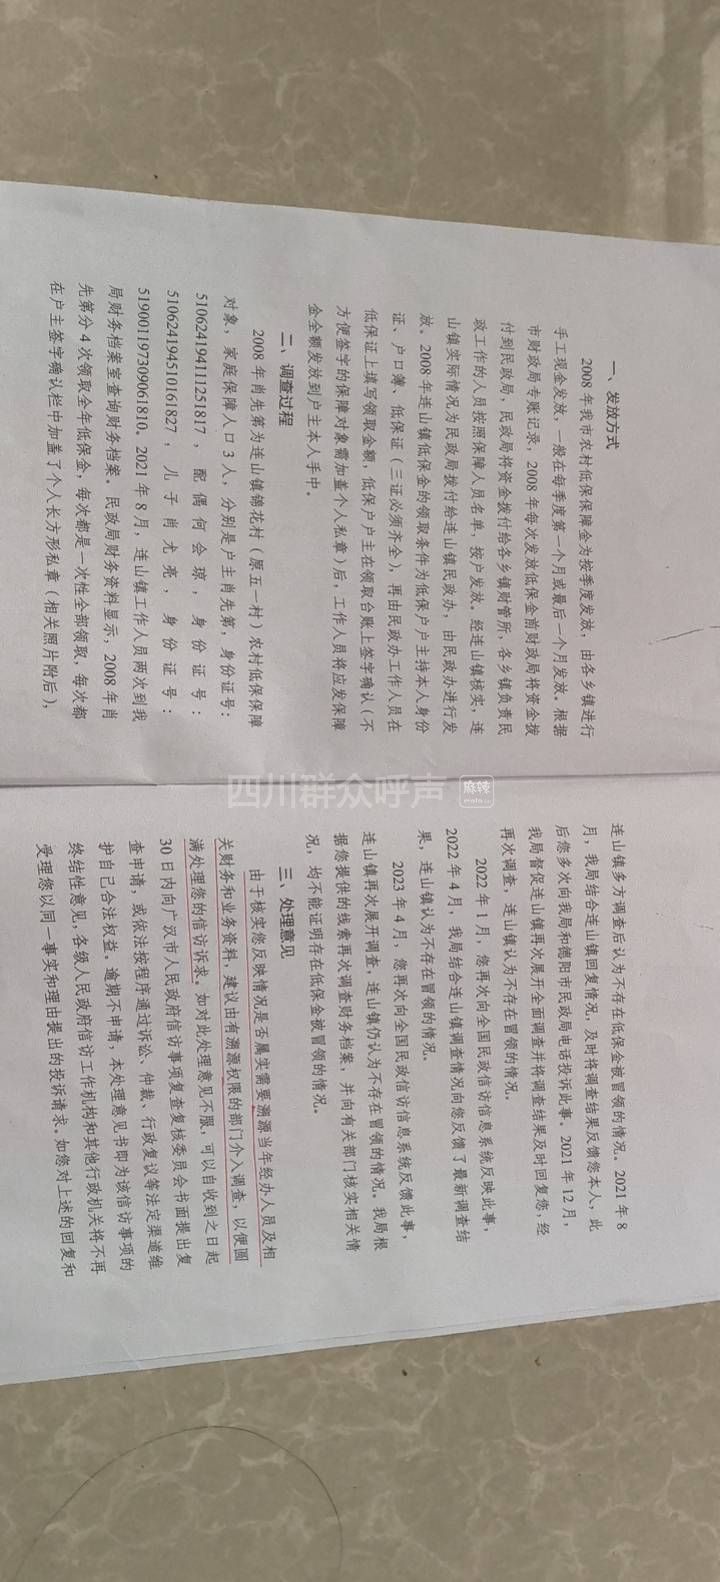 一、发放方式
2008年我市农村低保保障金为按季度发放，由各乡镇进行
手工现金发放，一般在每季度第一个月或最后一个月发放。根据
市财政局专账记录，2008年每次发放低保金前财政局将资金拨
付到民政局，民政局将资金拨付给各乡镇财管所，各乡镇负责民
政工作的人员按照保障人员名单，按户发放。经连山镇核实，连
山镇实际情况为民政局拨付给连山镇民政办，由民政办进行发
放。2008年连山镇低保金的领取条件为低保户户主持本人身份
证、户口簿、低保证（三证必须齐全），再由民政办工作人员在
低保证上填写领取金额，低保户户主在领取台账上签字确认（不
方便签字的保障对象需加盖个人私章）后，工作人员将应发保障
金全额发放到户主本人手中。
二、调查过程
2008年肖先第为连山镇锦花村（原五一村）农村低保保障
对象，家庭保障人口3人，分别是户主肖先第，身份证号：
510624194111251817，配偶何会琼，身份证号：
510624194510161827 儿子肖尤亮，身份证号：
519001197309061810。2021年8月，连山镇工作人员两次到我
局财务档案室查询财务档案。民政局财务资料显示，2008年肖
先第分4次领取全年低保金，每次都是一次性全部领取，每次都
在户主签字确认栏中加盖了个人长方形私章（相关照片附后），
连山镇多方调查后认为不存在低保金被冒领的情况。2021年8
月，我局结合连山镇回复情况，及时将调查结果反馈您本人，此
后您多次向我局和德阳市民政局电话投诉此事。2021年12月，
我局督促连山镇再次展开全面调查并将调查结果及时回复您，经
再次调查，连山镇认为不存在冒领的情况。
2022年1月，您再次向全国民政信访信息系统反映此事，
2022年4月，我局结合连山镇调查情况向您反馈了最新调查结
果，连山镇认为不存在冒领的情况。
2023年4月，您再次向全国民政信访信息系统反馈此事，
连山镇再次展开调查，连山镇仍认为不存在冒领的情况。我局根
据您提供的线索再次调查财务档案，并向有关部门核实相关情
况，均不能证明存在低保金被冒领的情况。
三、处理意见
由于核实您反映情况是否属实需要溯源当年经办人员及相
关财务和业务资料，建议由有溯源权限的部门介入调查，以便圆
满处理您的信访诉求。如对此处理意见不服，可以自收到之日起
30日内向广汉市人民政府信访事项复查复核委员会书面提出复
查申请，或依法按程序通过诉讼、仲裁、行政复议等法定渠道维
护自己合法权益。逾期不申请，本处理意见书即为该信访事项的
终结性意见，各级人民政府信访工作机构和其他行政机关将不再
受理您以同一事实和理由提出的投诉请求。如您对上述的回复和
四川群众呼声 麻辣